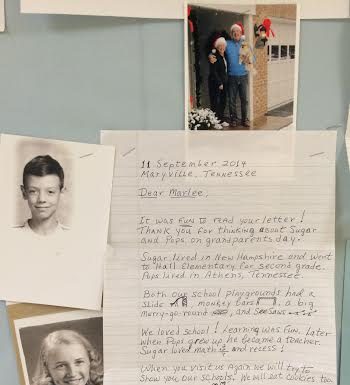 11 September 2014
Maryville, Tennessee
Dear Marlee,
It was fun to read your letter!
Thank you for thinking about Sugar
and Pops on grandparents day.
Sugar lived in New Hampshire and went
to Hall Elementary for second grade.
Pops lived in Athens, Tennessee.
Both our school playgrounds had a
slide, monkey bars, a big
merry-go-round, and seesaws.
We loved school! Learning was fun. Later
when Pops grew up he became a teacher.
Sugar loved math and recess!
When you visit again we will try to
show you our schools. We will eat cookies, too.